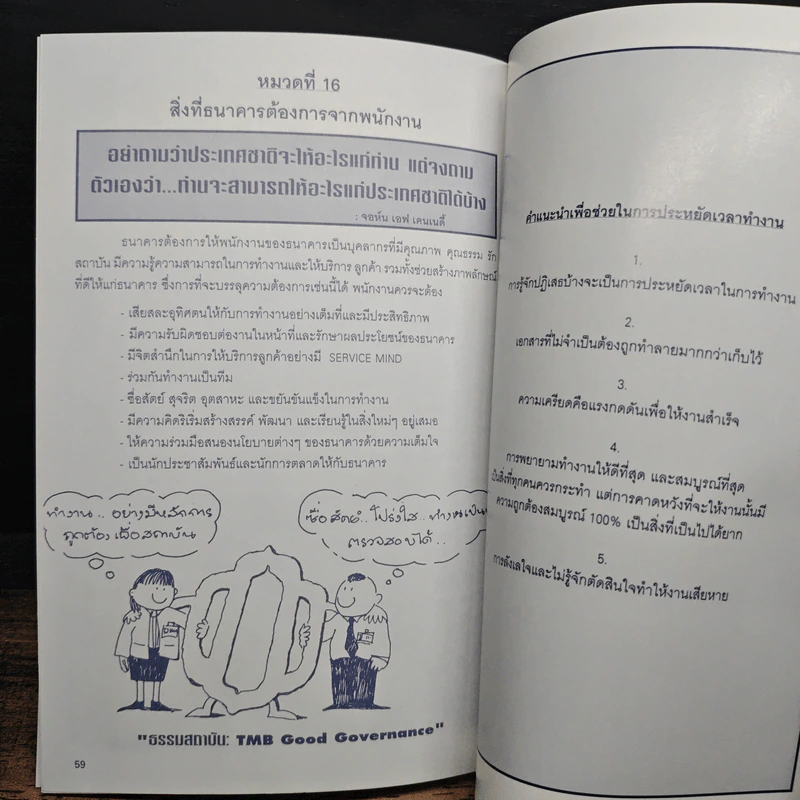 หมวดที่ 16
สิ่งที่ธนาคารต้องการจากพนักงาน
อย่าถามว่าประเทศชาติจะให้อะไรแก่ท่าน แต่จงถาม
ตัวเองว่า...ท่านจะสามารถให้อะไรแก่ประเทศชาติได้บ้าง
: จอห์น เอฟ เคนเนดี้
ธนาคารต้องการให้พนักงานของธนาคารเป็นบุคลากรที่มีคุณภาพ คุณธรรม รัก
สถาบัน มีความรู้ความสามารถในการทำงานและให้บริการ ลูกค้า รวมทั้งช่วยสร้างภาพลักษณ์
ที่ดีให้แก่ธนาคาร ซึ่งการที่จะบรรลุความต้องการเช่นนี้ได้ พนักงานควรจะต้อง
- เสียสละอุทิศตนให้กับการทำงานอย่างเต็มที่และมีประสิทธิภาพ
- มีความรับผิดชอบต่องานในหน้าที่และรักษาผลประโยชน์ของธนาคาร
- มีจิตสำนึกในการให้บริการลูกค้าอย่างมี SERVICE MIND
- ร่วมกันทำงานเป็นทีม
- ซื่อสัตย์ สุจริต อุตสาหะ และขยันขันแข็งในการทำงาน
- มีความคิดริเริ่มสร้างสรรค์ พัฒนา และเรียนรู้ในสิ่งใหม่ๆ อยู่เสมอ
- ให้ความร่วมมือสนองนโยบายต่างๆ ของธนาคารด้วยความเต็มใจ
- เป็นนักประชาสัมพันธ์และนักการตลาดให้กับธนาคาร
ทำงาน.. อย่างมีหลักการ
ถูกต้อง เพื่อสถาบัน
ซื่อสัตย์.. โปร่งใส.. ทำงานเป็น
ตรวจสอบได้..
"ธรรมสถาบัน: TMB Good Governance"
59
คำแนะนำเพื่อช่วยในการประหยัดเวลาทำงาน
1.
การรู้จักปฏิเสธบ้างจะเป็นการประหยัดเวลาในการทำงาน
2.
เอกสารที่ไม่จำเป็นต้องถูกทำลายมากกว่าเก็บไว้
3.
ความเครียดคือแรงกดดันเพื่อให้งานสำเร็จ
4.
การพยายามทำงานให้ดีที่สุด และสมบูรณ์ที่สุด
เป็นสิ่งที่ทุกคนควรกระทำ แต่การคาดหวังที่จะให้งานนั้นมี
ความถูกต้องสมบูรณ์ 100% เป็นสิ่งที่เป็นไปได้ยาก
5.
การลังเลใจและไม่รู้จักตัดสินใจทำให้งานเสียหาย